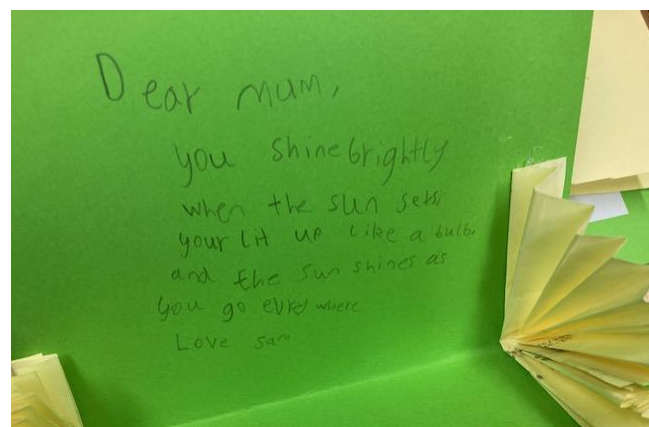 Dear mum,
you shine brightly
when the sun sets,
your lit up like a bulb,
and the sun shines as
you go evrey where
Love sam